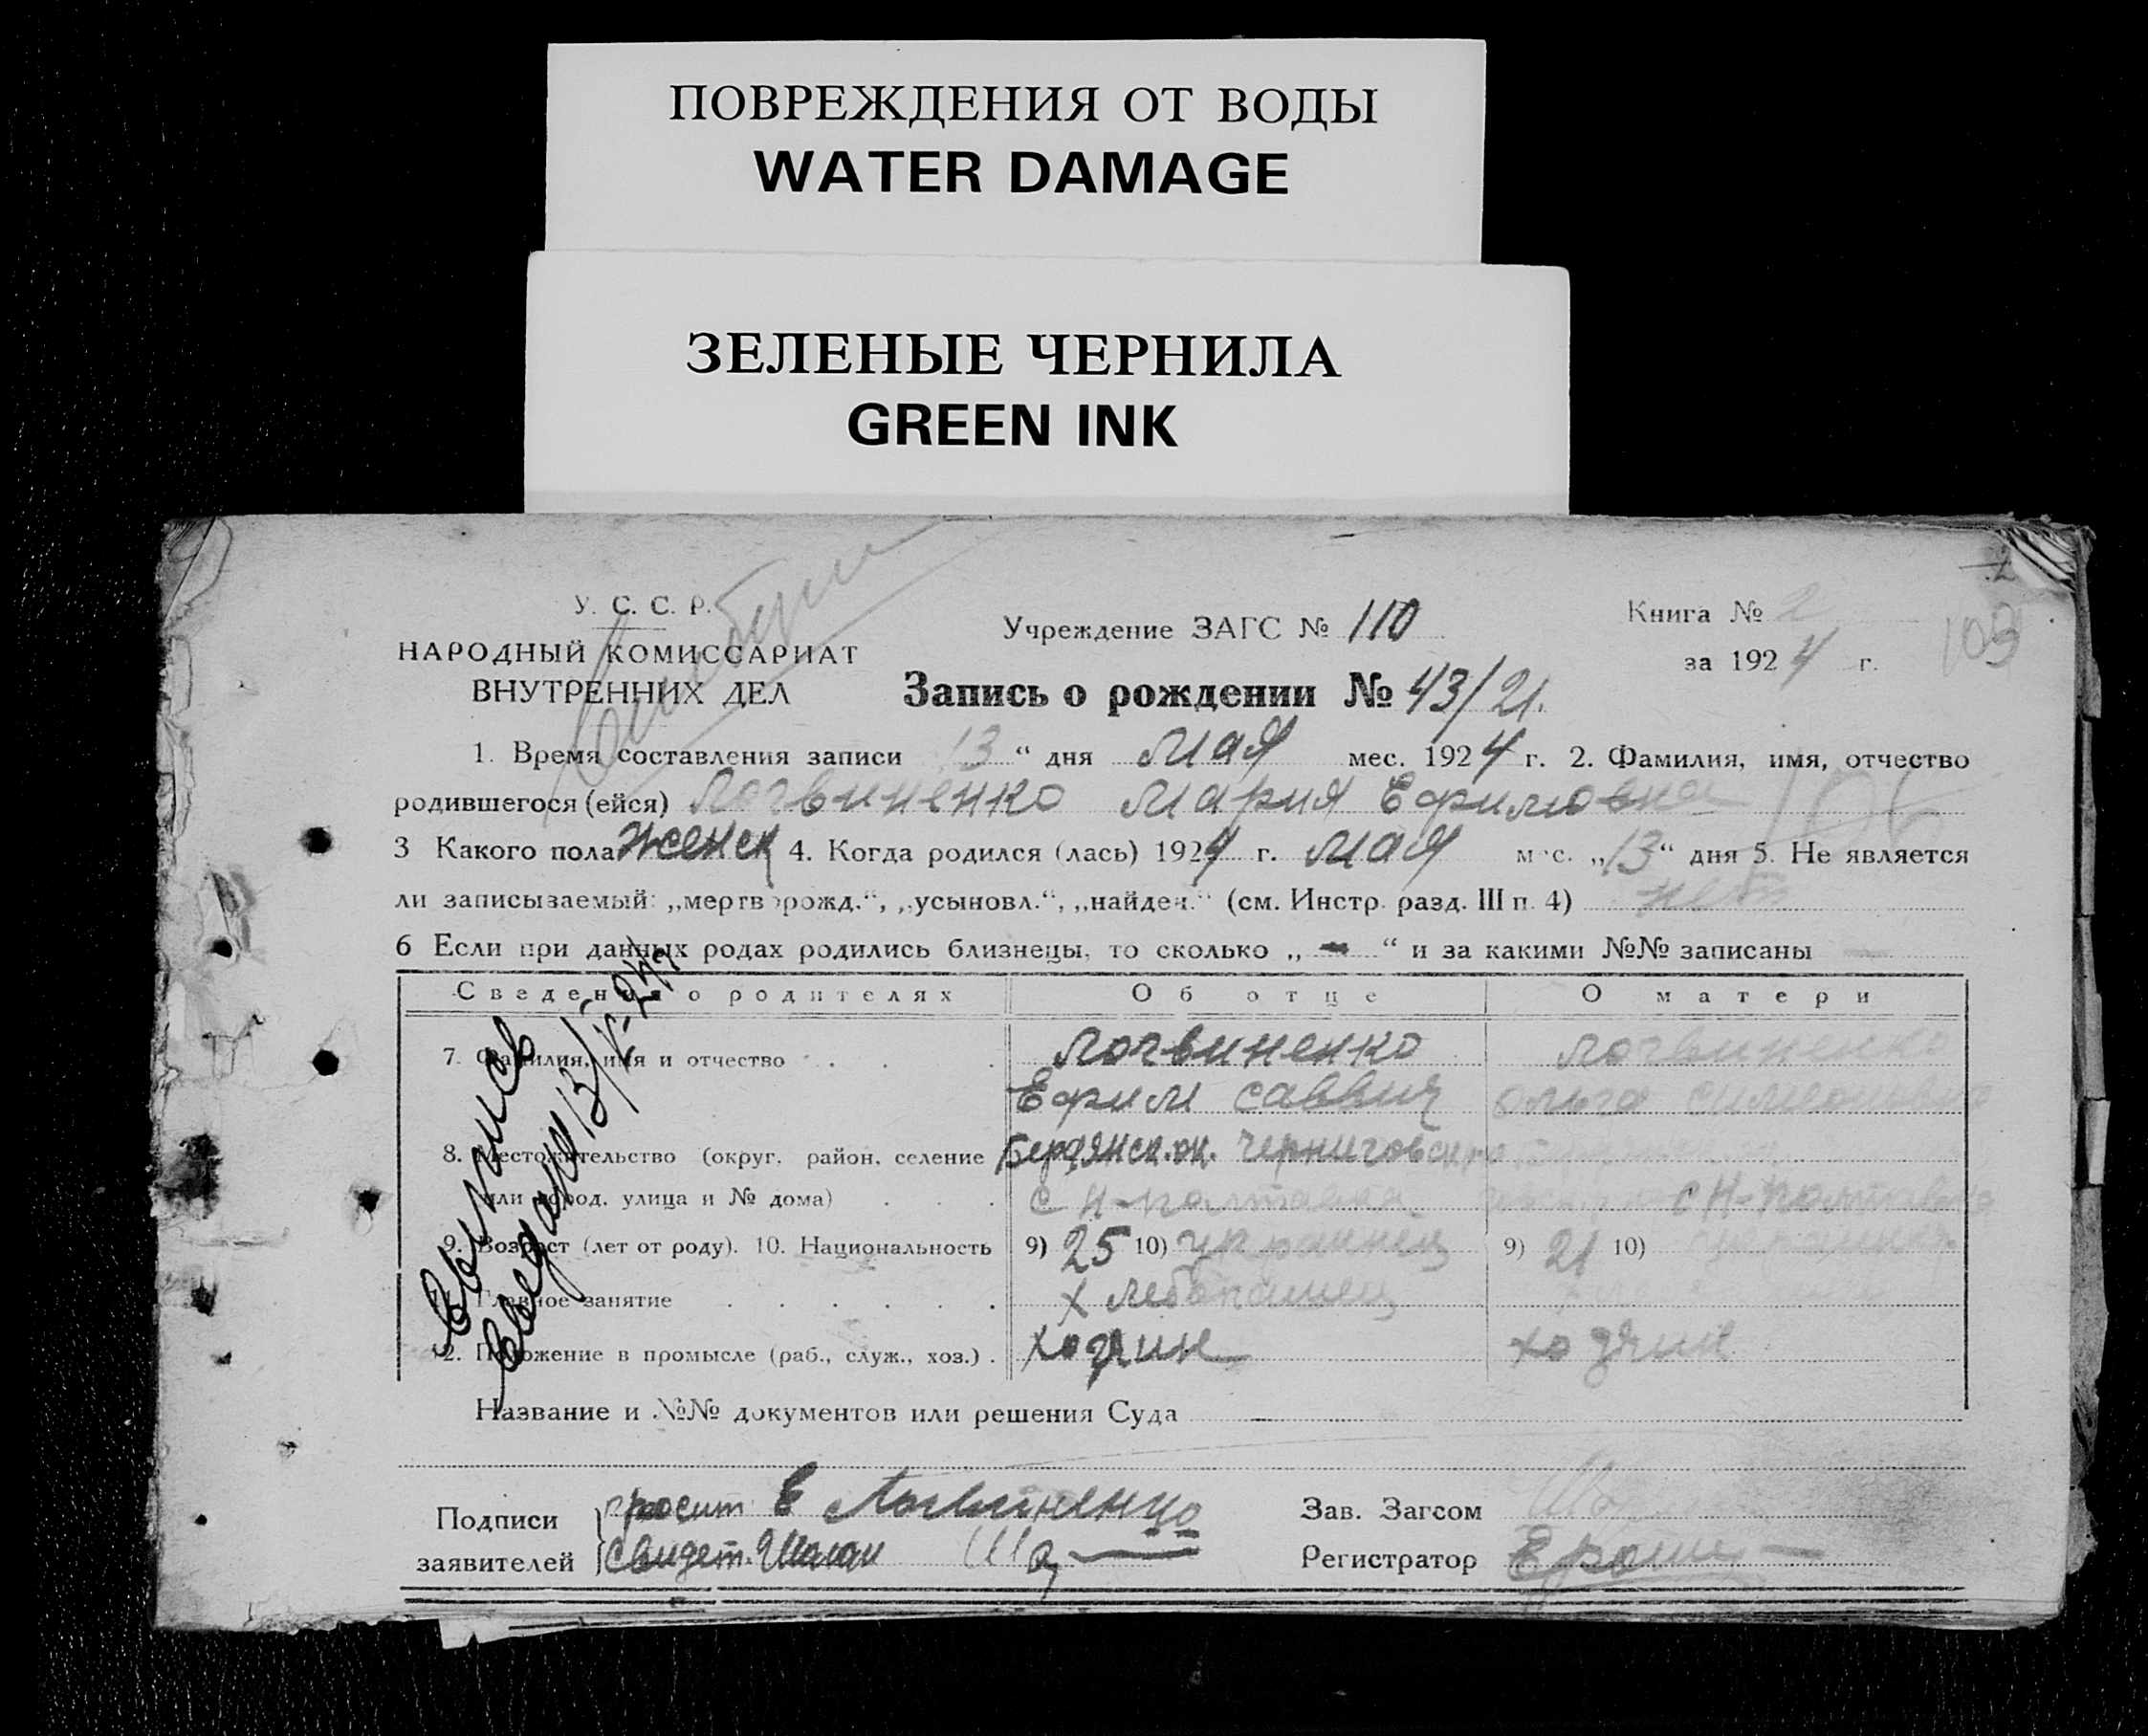 ПОВРЕЖДЕНИЯ ОТ ВОДЫ
WATER DAMAGE
ЗЕЛЕНЫЕ ЧЕРНИЛА
GREEN INK
У. С. С. Р.
НАРОДНЫЙ КОМИССАРИАТ
ВНУТРЕННИХ ДЕЛ
Учреждение ЗАГС № 110
Книга № 2
за 1924 г.
103
Запись о рождении № 43/21.
1. Время составления записи 13 “ дня мая мес. 1924 г. 2. Фамилия, имя, отчество
родившегося (ейся) Логвиненко Мария Ефимовна
3 Какого пола женск 4. Когда родился (лась) 1924 г. мая мес. „13“ дня 5. Не является
ли записываемый: „мертворожд.“, „усыновл.“, „найден.“ (см. Инстр. разд. III п. 4) нет
6 Если при данных родах родились близнецы, то сколько „ - “ и за какими №№ записаны
Сведения о родителях Об отце О матери
7. Фамилия, имя и отчество Логвиненко Логвиненко
Ефим Саввич Ольга Симеоновна
8. Местожительство (округ, район, селение Бердянск. ок. Черниговск
или город, улица и № дома) с Н-Полтавка с Н-Полтавка
9. Возраст (лет от роду). 10. Национальность 9) 25 10) украинец 9) 21 10)
Главное занятие хлебопашец
12. Положение в промысле (раб., служ., хоз.) хозяин хозяин
Выпись
выдана 13/V-24
Название и №№ документов или решения Суда —
Подписи
заявителей
просит Е Логвиненко
свидет.
Зав. Загсом
Регистратор